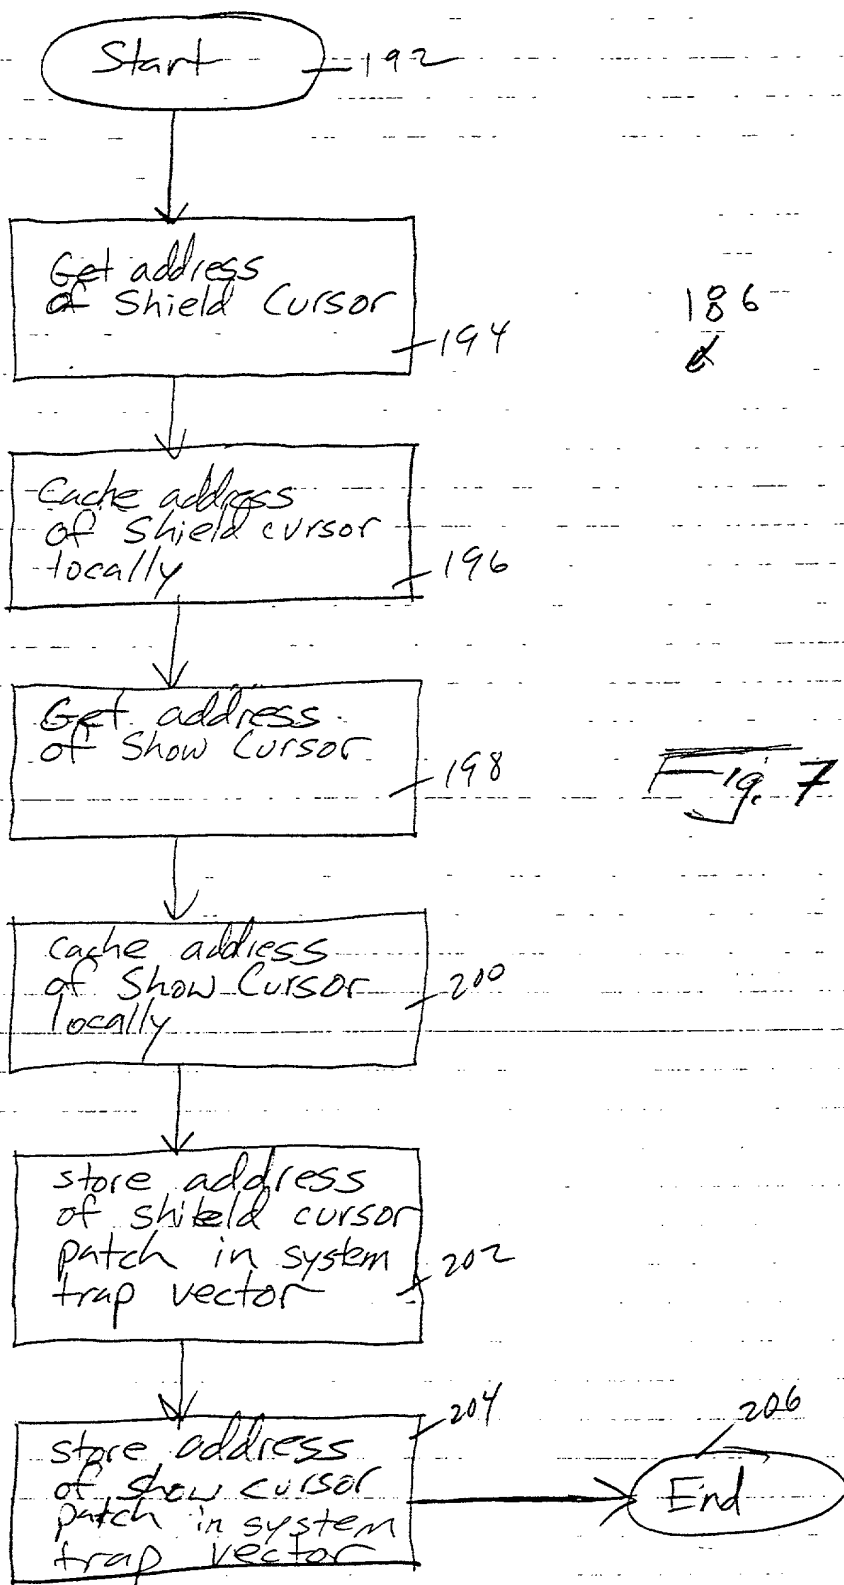 Start 192
Get address
of Shield Cursor
194
186
Cache address
of Shield cursor
locally
196
Get address
of Show Cursor
198
Fig. 7
cache address
of Show Cursor
locally
200
store address
of shield cursor
patch in system
trap vector
202
204
store address
of show cursor
patch in system
trap vector
206
End